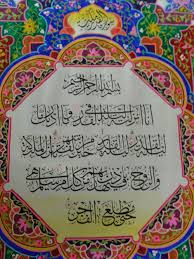 بسم الله الرحمن الرحيم
انا انزلناه في ليلة القدر وما ادراك ما
ليلة القدر ليلة القدر خير من الف شهر تنزل الملائكة
والروح فيها باذن ربهم من كل امر سلام هي
حتى مطلع الفجر